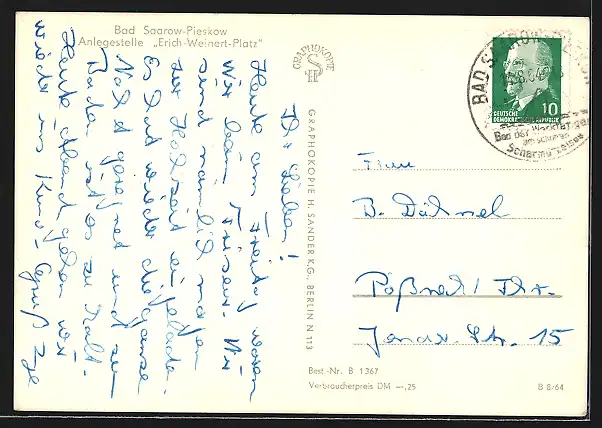 Bad Saarow-Pieskow
Anlegestelle „Erich-Weinert-Platz"
Ihr Lieben!
Heute am Freitag waren
wir beim Friseur. Wir
sind nämlich morgen
zur Hochzeit eingeladen.
Es hat wieder die ganze
Nacht geregnet und zum
Baden ist es zu kalt.
Heute Abend gehen wir
wieder ins Kino. Gruß Inge
GRAPHOKOPIE
SH
GRAPHOKOPIE H. SANDER K.G., BERLIN N 113
BAD SAAROW-PIESKOW
10
DEUTSCHE
DEMOKRATISCHE REPUBLIK
Bad der Werktätigen
am schönen
Scharmützelsee
Frau
B. Dähnel
Pößneck/Thür.
Jenaer Str. 15
Best.-Nr. B 1367
Verbraucherpreis DM —,25
B 8/64